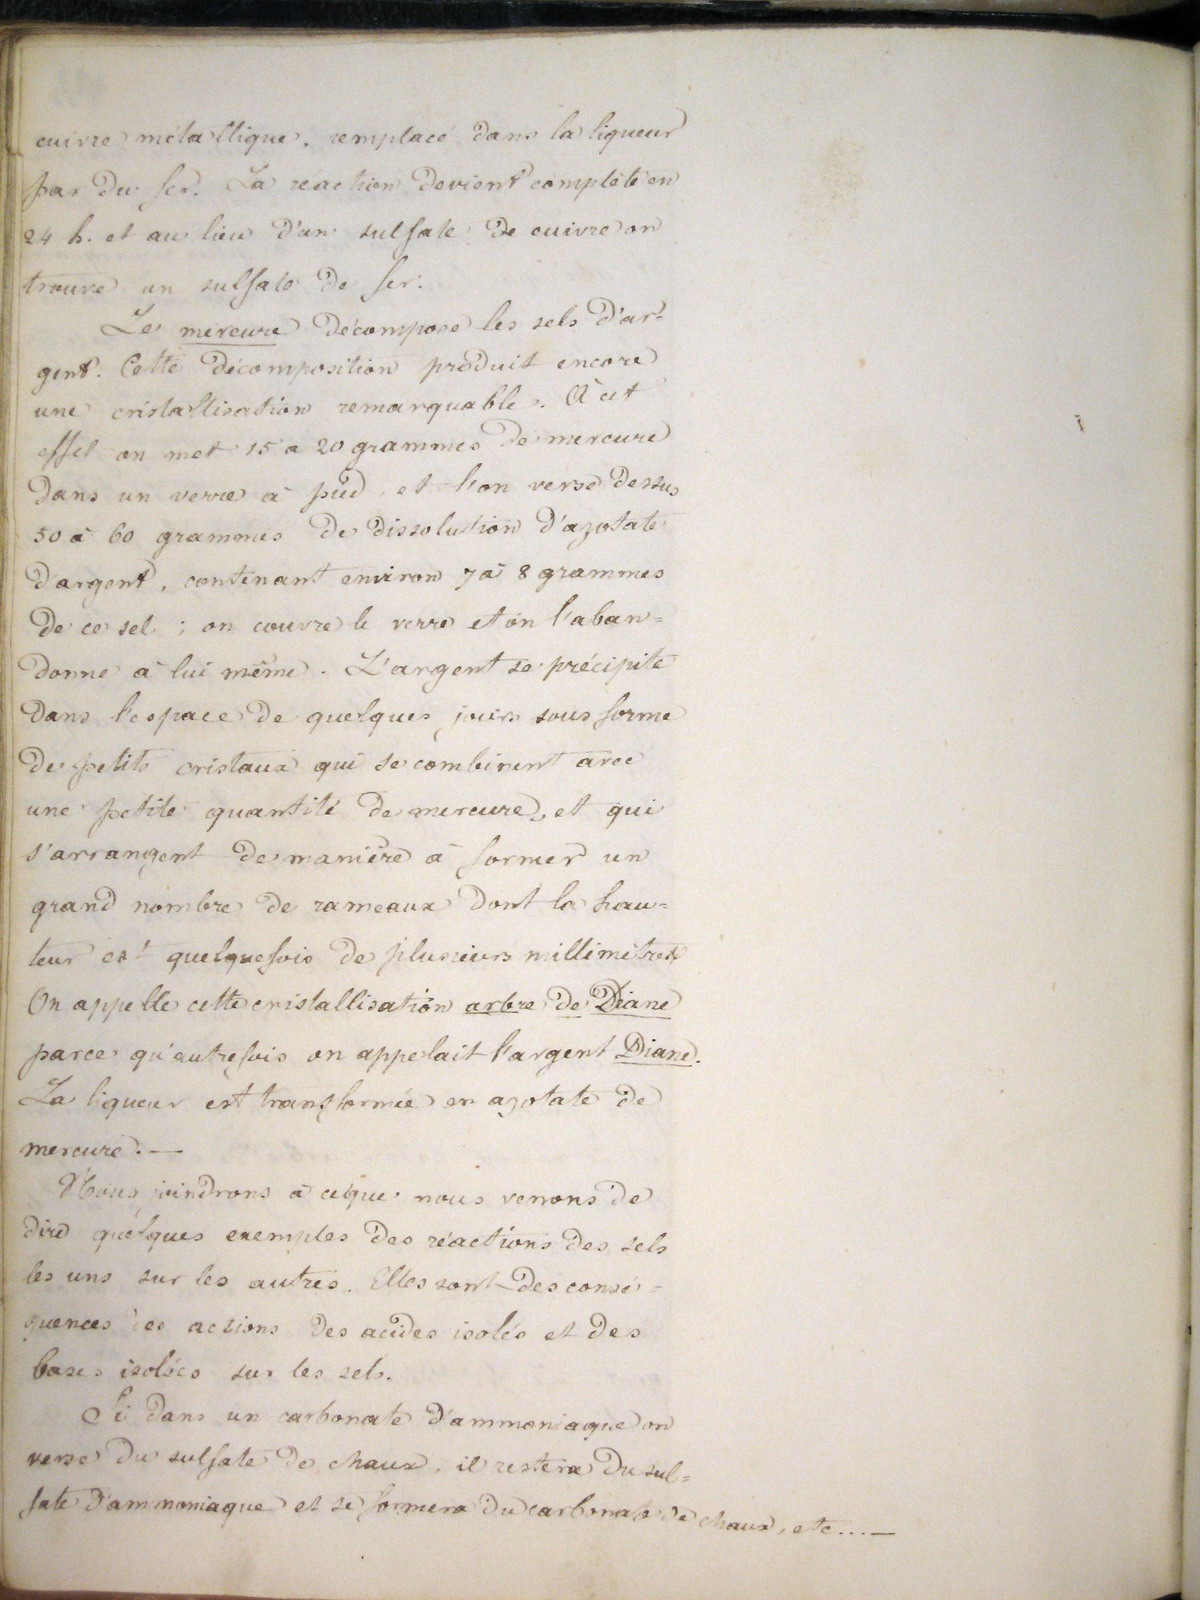 cuivre métallique, remplacé dans la liqueur
par du fer. La réaction devient complète en
24 h. et au lieu d'un sulfate de cuivre on
trouve un sulfate de fer.
Le mercure décompose les sels d'ar=
gent. Cette décomposition produit encore
une cristallisation remarquable. A cet
effet on met 15 à 20 grammes de mercure
dans un verre à pied, et l'on verse dessus
50 à 60 grammes de dissolution d'azotate
d'argent, contenant environ 7 à 8 grammes
de ce sel ; on couvre le verre et on l'aban=
donne à lui même. L'argent se précipite
dans l'espace de quelques jours sous forme
de petits cristaux qui se combinent avec
une petite quantité de mercure, et qui
s'arrangent de manière à former un
grand nombre de rameaux dont la hau=
teur est quelquefois de plusieurs millimètres
On appelle cette cristallisation arbre de Diane
parce qu'autrefois on appelait l'argent Diane.
La liqueur est transformée en azotate de
mercure. —
Nous joindrons à ce que nous venons de
dire quelques exemples des réactions des sels
les uns sur les autres. Elles sont des consé=
quences des actions des acides isolés et des
bases isolées sur les sels.
Si dans un carbonate d'ammoniaque on
verse du sulfate de chaux, il restera du sul=
fate d'ammoniaque et se formera du carbonate de chaux, etc...—